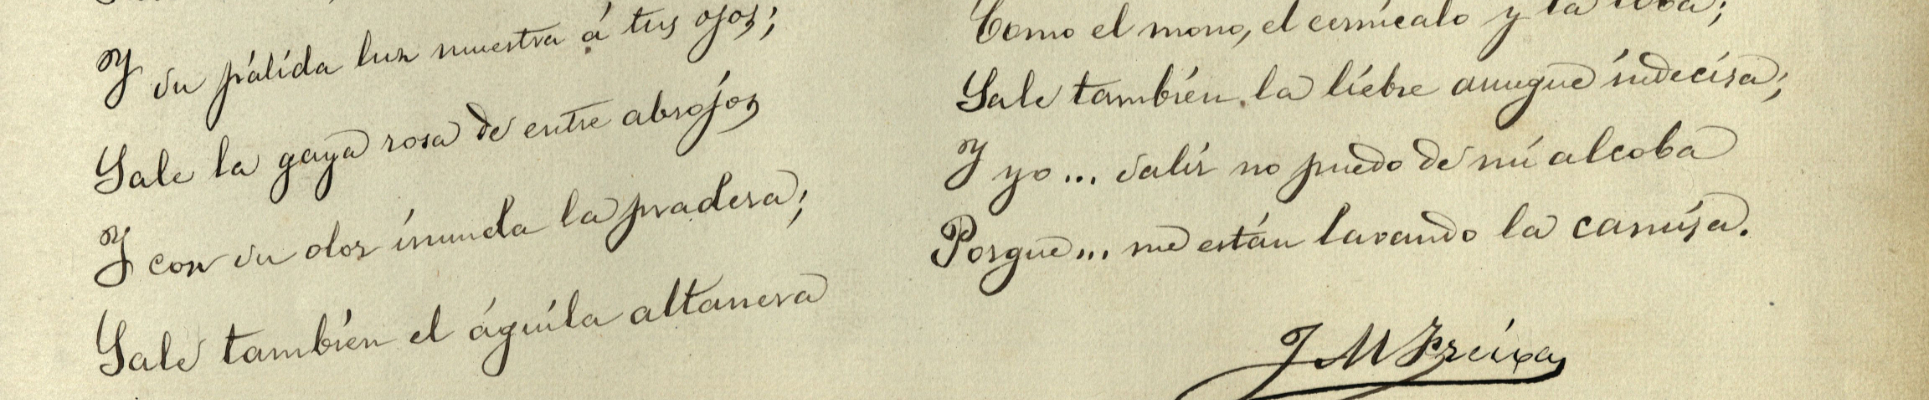 Y su pálida luz muestra á tus ojos;
Sale la gaya rosa de entre abrojos
Y con su olor inunda la pradera;
Sale también el águila altanera
Como el mono, el cernícalo y la loba;
Sale también la liebre aunque indecisa;
Y yo... salir no puedo de mi alcoba
Porque... me están lavando la camisa.
J M Freixas